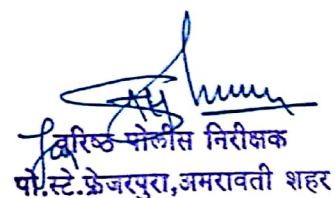 वरिष्ठ पोलीस निरीक्षक
पो.स्टे.फ्रेजरपुरा,अमरावती शहर